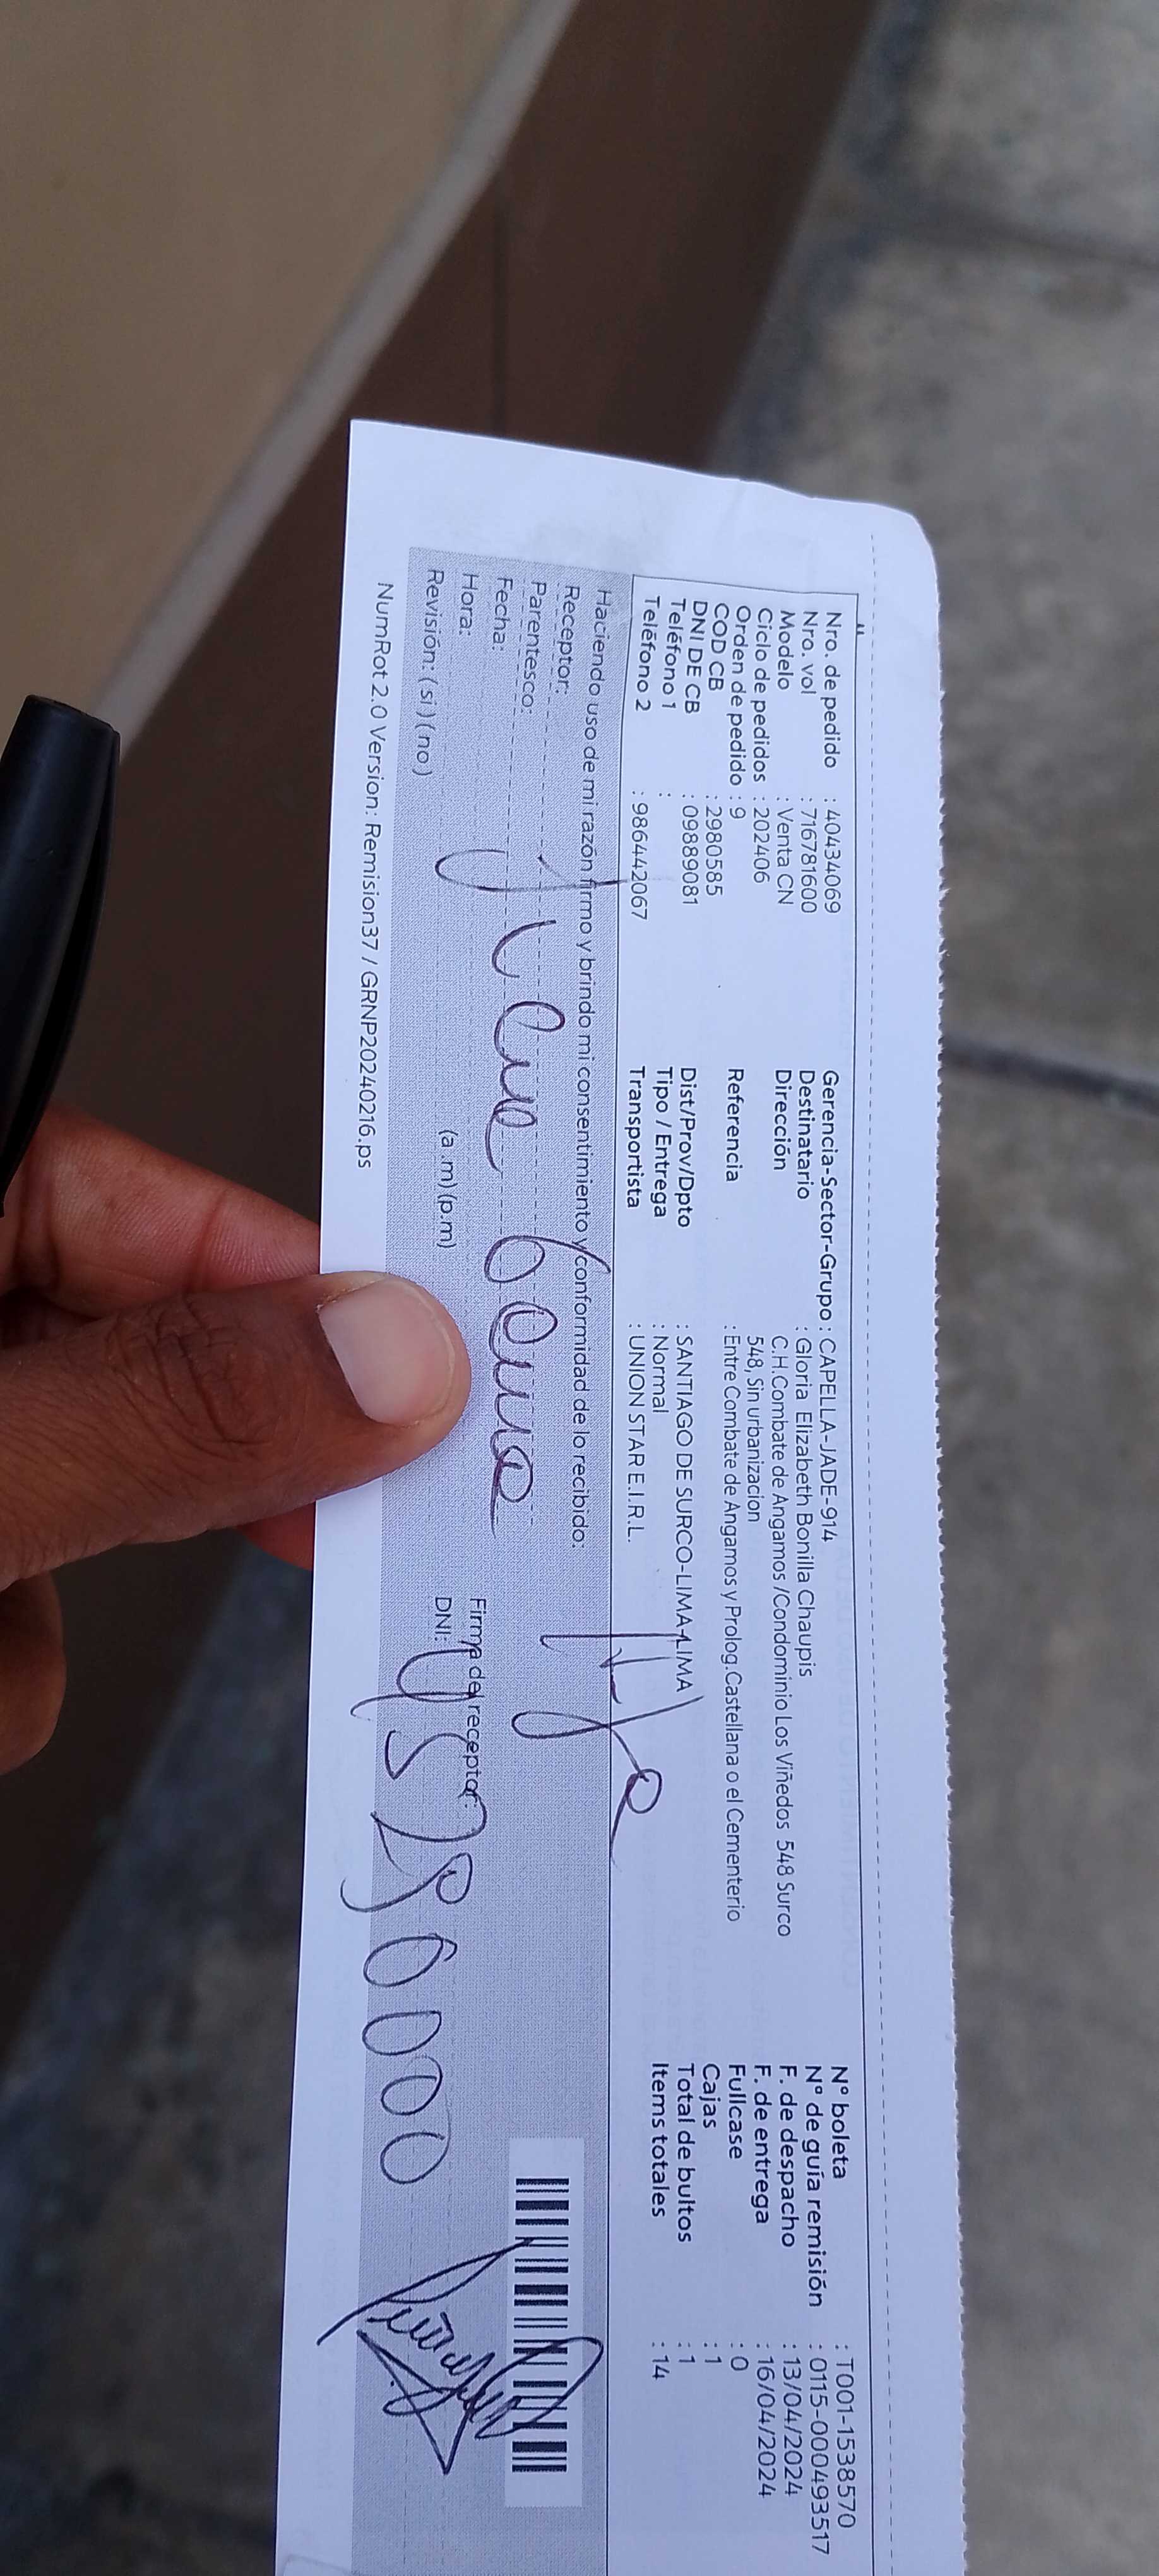 Nro. de pedido : 40434069
Nro. vol : 716781600
Modelo : Venta CN
Ciclo de pedidos : 202406
Orden de pedido : 9
COD CB : 2980585
DNI DE CB : 09889081
Teléfono 1 :
Teléfono 2 : 986442067
Gerencia-Sector-Grupo : CAPELLA-JADE-914
Destinatario : Gloria Elizabeth Bonilla Chaupis
Dirección C.H.Combate de Angamos /Condominio Los Viñedos 548 Surco
548, Sin urbanizacion
Referencia : Entre Combate de Angamos y Prolog.Castellana o el Cementerio
Dist/Prov/Dpto : SANTIAGO DE SURCO-LIMA-LIMA
Tipo / Entrega : Normal
Transportista : UNION STAR E.I.R.L.
N° boleta : T001-1538570
N° de guía remisión : 0115-000493517
F. de despacho : 13/04/2024
F. de entrega : 16/04/2024
Fullcase : 0
Cajas : 1
Total de bultos : 1
Items totales : 14
Haciendo uso de mi razón firmo y brindo mi consentimiento y conformidad de lo recibido:
Receptor:
Parentesco:
Fecha:
Hora: (a.m) (p.m)
Revisión: ( si ) ( no )
Firma del receptor:
DNI:
NumRot 2.0 Version: Remision37 / GRNP20240216.ps